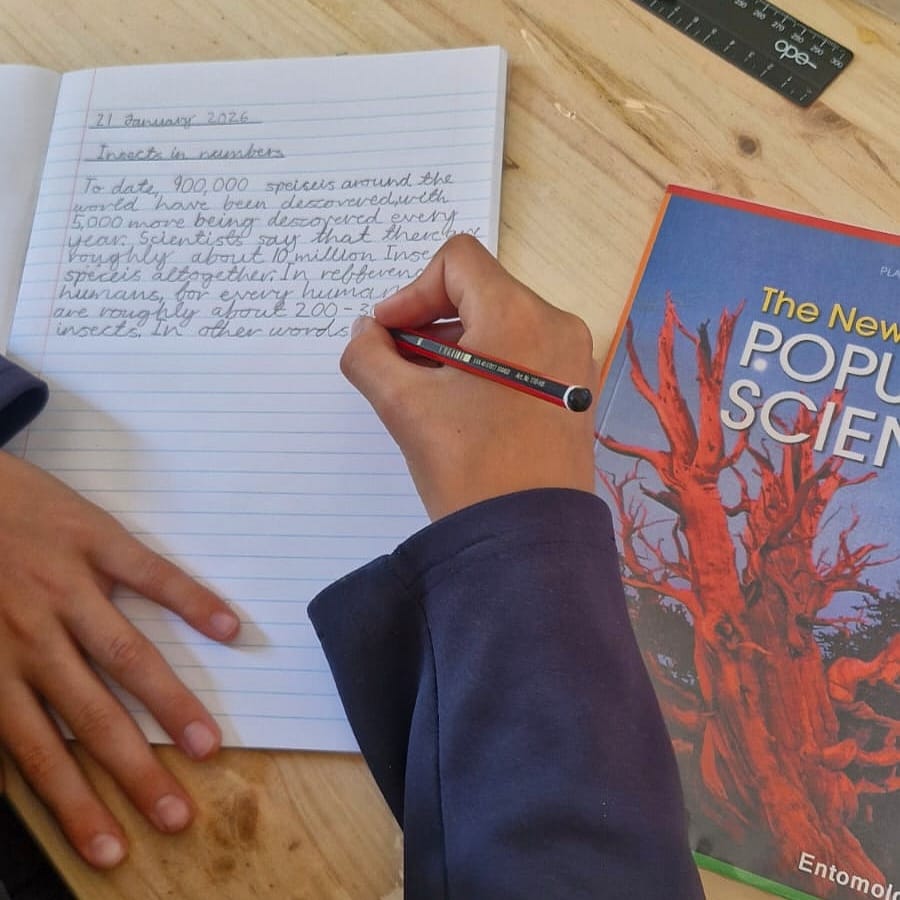 21 January 2026
Insects in numbers
To date, 900,000 speiseis around the
world have been descovered, with
5,000 more being descovered every
year. Scientists say that there are
roughly about 10 million Inse
speceis altogether. In refferenc
humans, for every human
are roughly about 200 - 30
insects. In other words
The New
POPU
SCIEN
PLA
Entomolo
ope
250 260 270 280 290 300